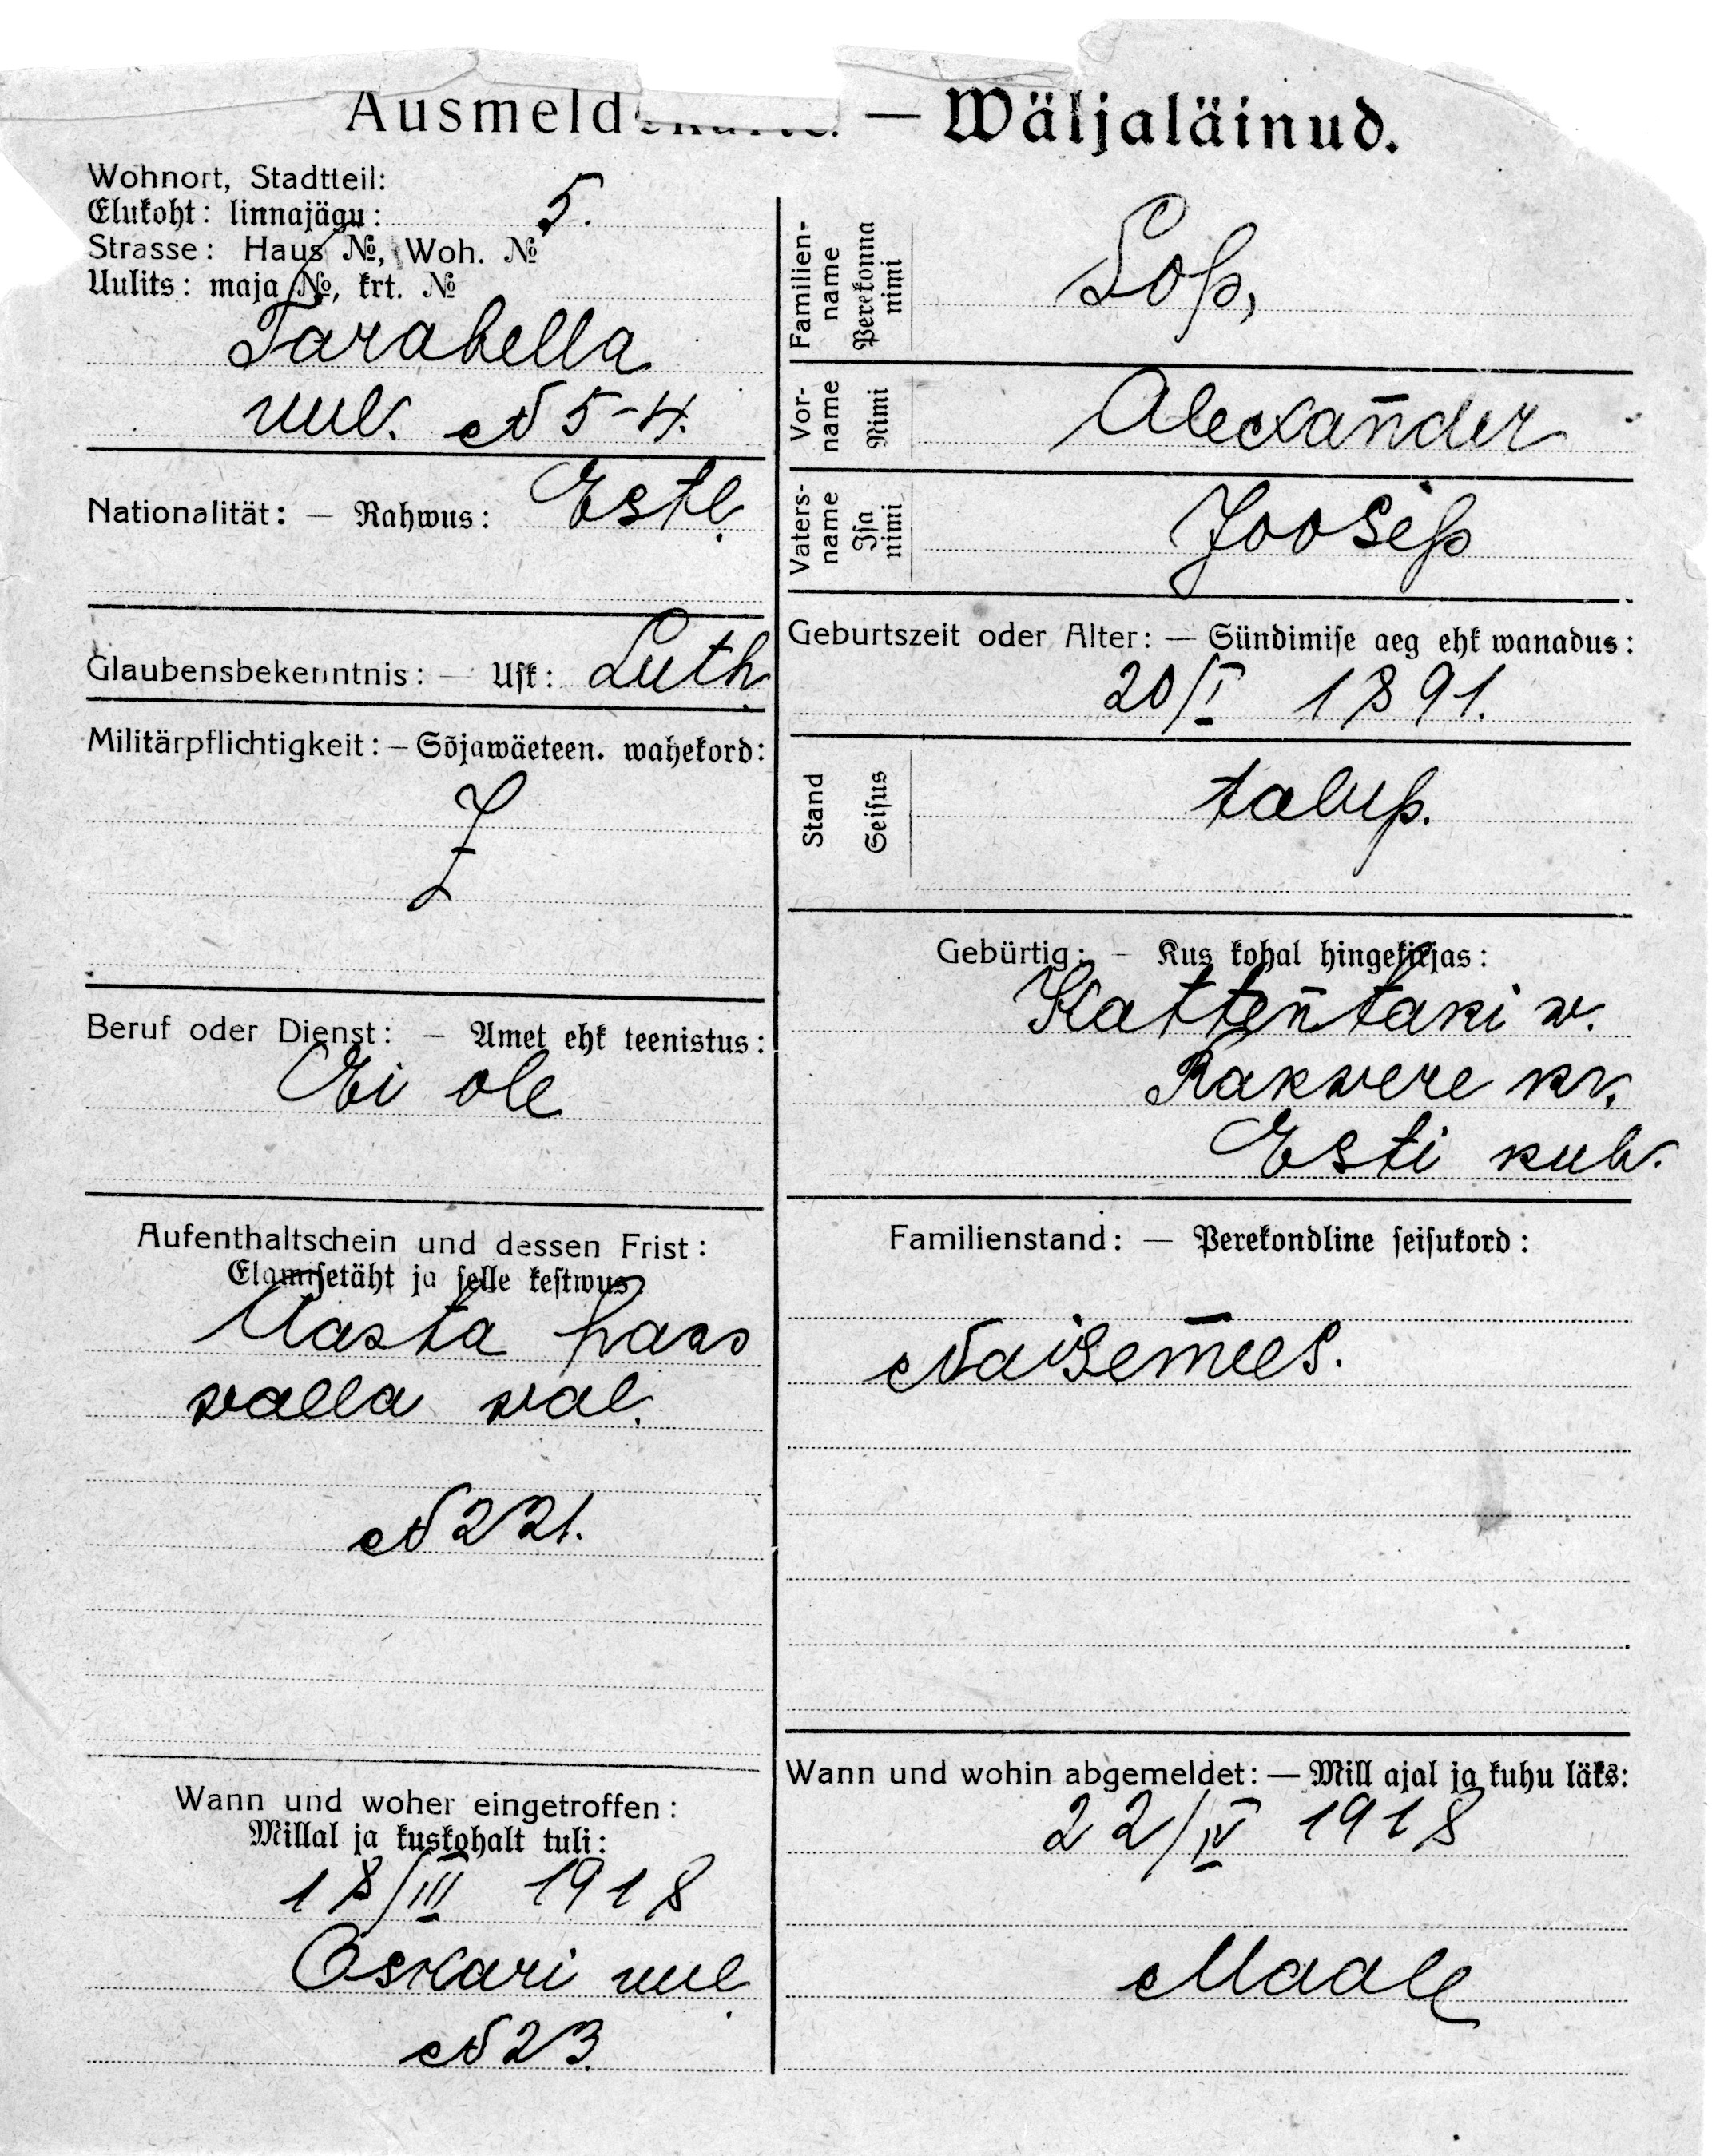 Ausmeldekarte. — Wäljaläinud.
Wohnort, Stadtteil:
Elukoht: linnajägu: 5.
Strasse: Haus №, Woh. №
Uulits: maja №, krt. №
Tarabella
uul. № 5-4.
Nationalität: — Rahwus: Estl.
Glaubensbekenntnis: — Usk: Luth.
Militärpflichtigkeit: — Sõjawäeteen. wahekord:
Beruf oder Dienst: — Amet ehk teenistus:
Ei ole
Aufenthaltschein und dessen Frist:
Elamisetäht ja selle kestwus
Aasta pass
walla wal.
№ 221.
Wann und woher eingetroffen:
Millal ja kuskohalt tuli:
18/III 1918
Oskari uul.
№ 23.
Familien-
name
Perekonna
nimi
Loß,
Vor-
name
Nimi
Alexander
Vaters-
name
Isa
nimi
Joosep
Geburtszeit oder Alter: — Sündimise aeg ehk wanadus:
20/I 1891.
Stand
Seisus
talup.
Gebürtig: — Kus kohal hingekirjas:
Kattentaki w.
Rakwere kr.
Esti kub.
Familienstand: — Perekondline seisukord:
Naisemees.
Wann und wohin abgemeldet: — Mill ajal ja kuhu läks:
22/IV 1918
Maale